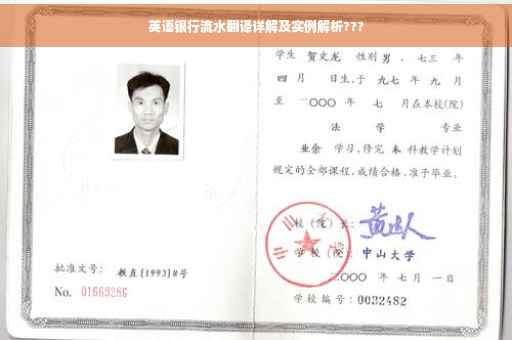 英语银行流水翻译详解及实例解析???
学生 贺文龙 性别 男 、七三 年
四 月 日生,于 九七 年 九 月
至 二〇〇〇 年 七 月在本校(院)
法 学 专业
业余 学习,修完 本 科教学计划
规定的全部课程,成绩合格,准予毕业。
校(院)长:
学校(院): 中山大学
二〇〇〇 年 七 月 一 日
批准文号: 教直[1993]8号
No. 01669286
学校编号: 0032482